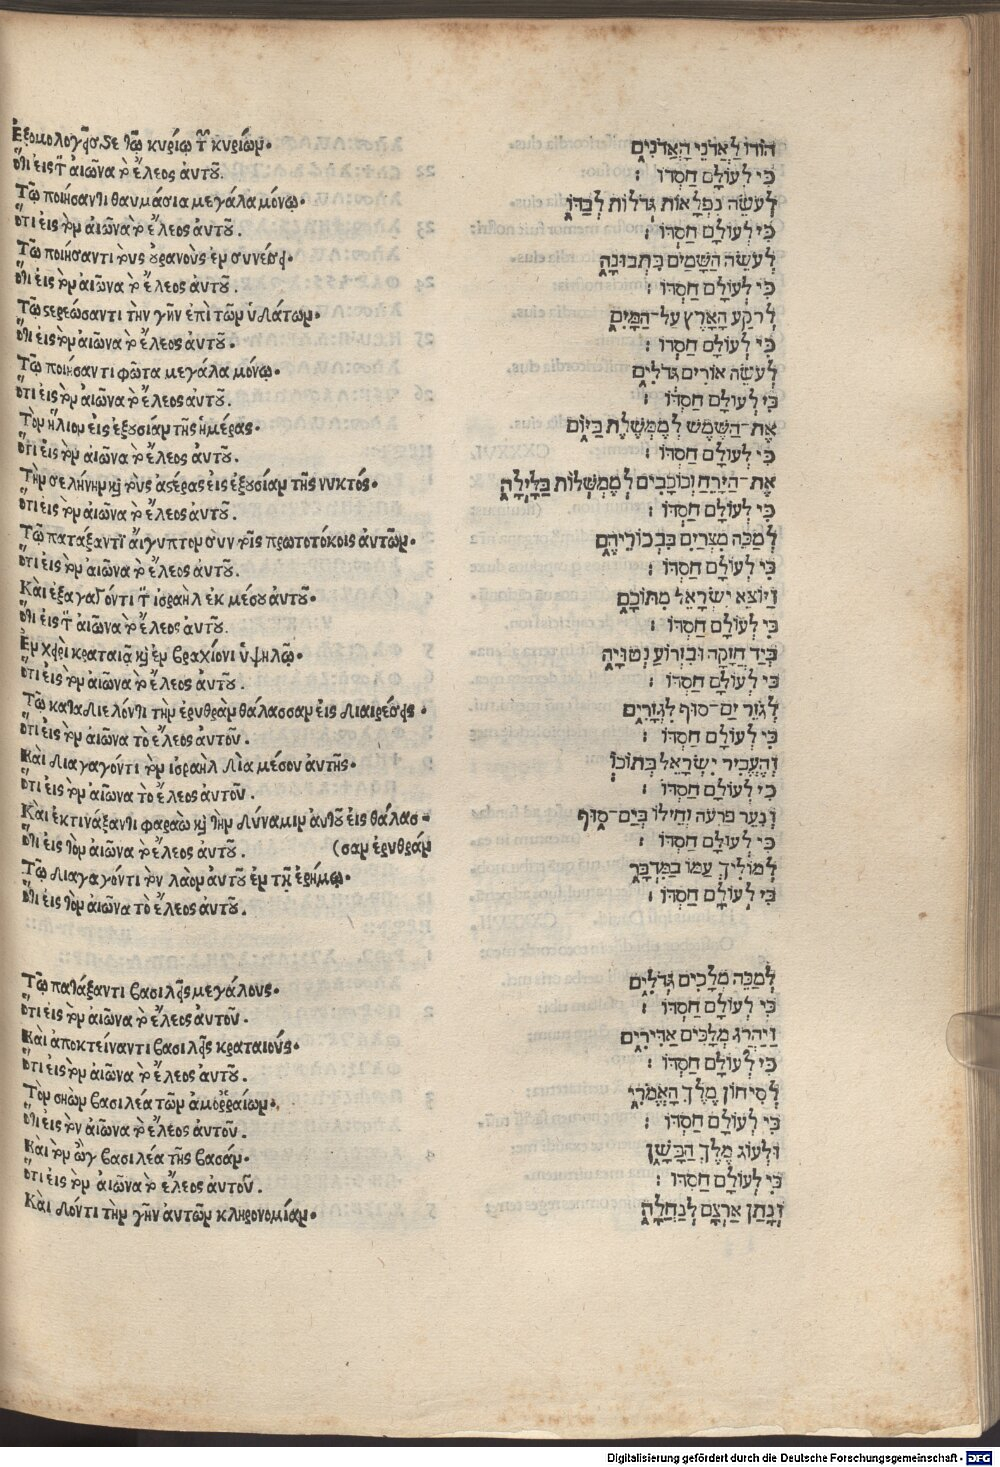 Ἐξομολογεῖσθε τῷ κυρίῳ τῶν κυρίων·
ὅτι εἰς τὸν αἰῶνα τὸ ἔλεος αὐτοῦ.
Τῷ ποιήσαντι θαυμάσια μεγάλα μόνῳ·
ὅτι εἰς τὸν αἰῶνα τὸ ἔλεος αὐτοῦ.
Τῷ ποιήσαντι τοὺς οὐρανοὺς ἐν συνέσει·
ὅτι εἰς τὸν αἰῶνα τὸ ἔλεος αὐτοῦ.
Τῷ στερεώσαντι τὴν γῆν ἐπὶ τῶν ὑδάτων·
ὅτι εἰς τὸν αἰῶνα τὸ ἔλεος αὐτοῦ.
Τῷ ποιήσαντι φῶτα μεγάλα μόνῳ·
ὅτι εἰς τὸν αἰῶνα τὸ ἔλεος αὐτοῦ.
Τὸν ἥλιον εἰς ἐξουσίαν τῆς ἡμέρας·
ὅτι εἰς τὸν αἰῶνα τὸ ἔλεος αὐτοῦ.
Τὴν σελήνην καὶ τοὺς ἀστέρας εἰς ἐξουσίαν τῆς νυκτός·
ὅτι εἰς τὸν αἰῶνα τὸ ἔλεος αὐτοῦ.
Τῷ πατάξαντι αἴγυπτον συν τοῖς πρωτοτόκοις αὐτῶν·
ὅτι εἰς τὸν αἰῶνα τὸ ἔλεος αὐτοῦ.
Καὶ ἐξαγαγόντι τὸν ἰσραὴλ ἐκ μέσου αὐτοῦ·
ὅτι εἰς τὸν αἰῶνα τὸ ἔλεος αὐτοῦ.
Ἐν χειρὶ κραταιᾷ καὶ ἐν βραχίονι ὑψηλῷ·
ὅτι εἰς τὸν αἰῶνα τὸ ἔλεος αὐτοῦ.
Τῷ καταδιελόντι τὴν ἐρυθρὰν θάλασσαν εἰς διαιρέσεις·
ὅτι εἰς τὸν αἰῶνα τὸ ἔλεος αὐτοῦ.
Καὶ διαγαγόντι τὸν ἰσραὴλ διὰ μέσου αὐτῆς·
ὅτι εἰς τὸν αἰῶνα τὸ ἔλεος αὐτοῦ.
Καὶ ἐκτινάξαντι φαραὼ καὶ τὴν δύναμιν αὐτοῦ εἰς θάλασ-
ὅτι εἰς τὸν αἰῶνα τὸ ἔλεος αὐτοῦ. (σαν ἐρυθράν
Τῷ διαγαγόντι τὸν λαὸν αὐτοῦ ἐν τῇ ἐρήμῳ·
ὅτι εἰς τὸν αἰῶνα τὸ ἔλεος αὐτοῦ.
Τῷ πατάξαντι βασιλεῖς μεγάλους·
ὅτι εἰς τὸν αἰῶνα τὸ ἔλεος αὐτοῦ.
Καὶ ἀποκτείναντι βασιλεῖς κραταιούς·
ὅτι εἰς τὸν αἰῶνα τὸ ἔλεος αὐτοῦ.
Τὸν σηὼν βασιλέα τῶν ἀμορραίων·
ὅτι εἰς τὸν αἰῶνα τὸ ἔλεος αὐτοῦ.
Καὶ τὸν ὢγ βασιλέα τῆς βασάν·
ὅτι εἰς τὸν αἰῶνα τὸ ἔλεος αὐτοῦ.
Καὶ δόντι τὴν γῆν αὐτῶν κληρονομίαν·
הוֹדוּ לַאֲדֹנֵי הָאֲדֹנִים
כִּי לְעוֹלָם חַסְדּוֹ :
לְעֹשֵׂה נִפְלָאוֹת גְּדֹלוֹת לְבַדּוֹ
כִּי לְעוֹלָם חַסְדּוֹ :
לְעֹשֵׂה הַשָּׁמַיִם בִּתְבוּנָה
כִּי לְעוֹלָם חַסְדּוֹ :
לְרֹקַע הָאָרֶץ עַל־הַמָּיִם
כִּי לְעוֹלָם חַסְדּוֹ :
לְעֹשֵׂה אוֹרִים גְּדֹלִים
כִּי לְעוֹלָם חַסְדּוֹ :
אֶת־הַשֶּׁמֶשׁ לְמֶמְשֶׁלֶת בַּיּוֹם
כִּי לְעוֹלָם חַסְדּוֹ :
אֶת־הַיָּרֵחַ וְכוֹכָבִים לְמֶמְשְׁלוֹת בַּלָּיְלָה
כִּי לְעוֹלָם חַסְדּוֹ :
לְמַכֵּה מִצְרַיִם בִּבְכוֹרֵיהֶם
כִּי לְעוֹלָם חַסְדּוֹ :
וַיּוֹצֵא יִשְׂרָאֵל מִתּוֹכָם
כִּי לְעוֹלָם חַסְדּוֹ :
בְּיָד חֲזָקָה וּבִזְרוֹעַ נְטוּיָה
כִּי לְעוֹלָם חַסְדּוֹ :
לְגֹזֵר יַם־סוּף לִגְזָרִים
כִּי לְעוֹלָם חַסְדּוֹ :
וְהֶעֱבִיר יִשְׂרָאֵל בְּתוֹכוֹ
כִּי לְעוֹלָם חַסְדּוֹ :
וְנִעֵר פַּרְעֹה וְחֵילוֹ בְיַם־סוּף
כִּי לְעוֹלָם חַסְדּוֹ :
לְמוֹלִיךְ עַמּוֹ בַּמִּדְבָּר
כִּי לְעוֹלָם חַסְדּוֹ :
לְמַכֵּה מְלָכִים גְּדֹלִים
כִּי לְעוֹלָם חַסְדּוֹ :
וַיַּהֲרֹג מְלָכִים אַדִּירִים
כִּי לְעוֹלָם חַסְדּוֹ :
לְסִיחוֹן מֶלֶךְ הָאֱמֹרִי
כִּי לְעוֹלָם חַסְדּוֹ :
וּלְעוֹג מֶלֶךְ הַבָּשָׁן
כִּי לְעוֹלָם חַסְדּוֹ :
וְנָתַן אַרְצָם לְנַחֲלָה
Digitalisierung gefördert durch die Deutsche Forschungsgemeinschaft - DFG